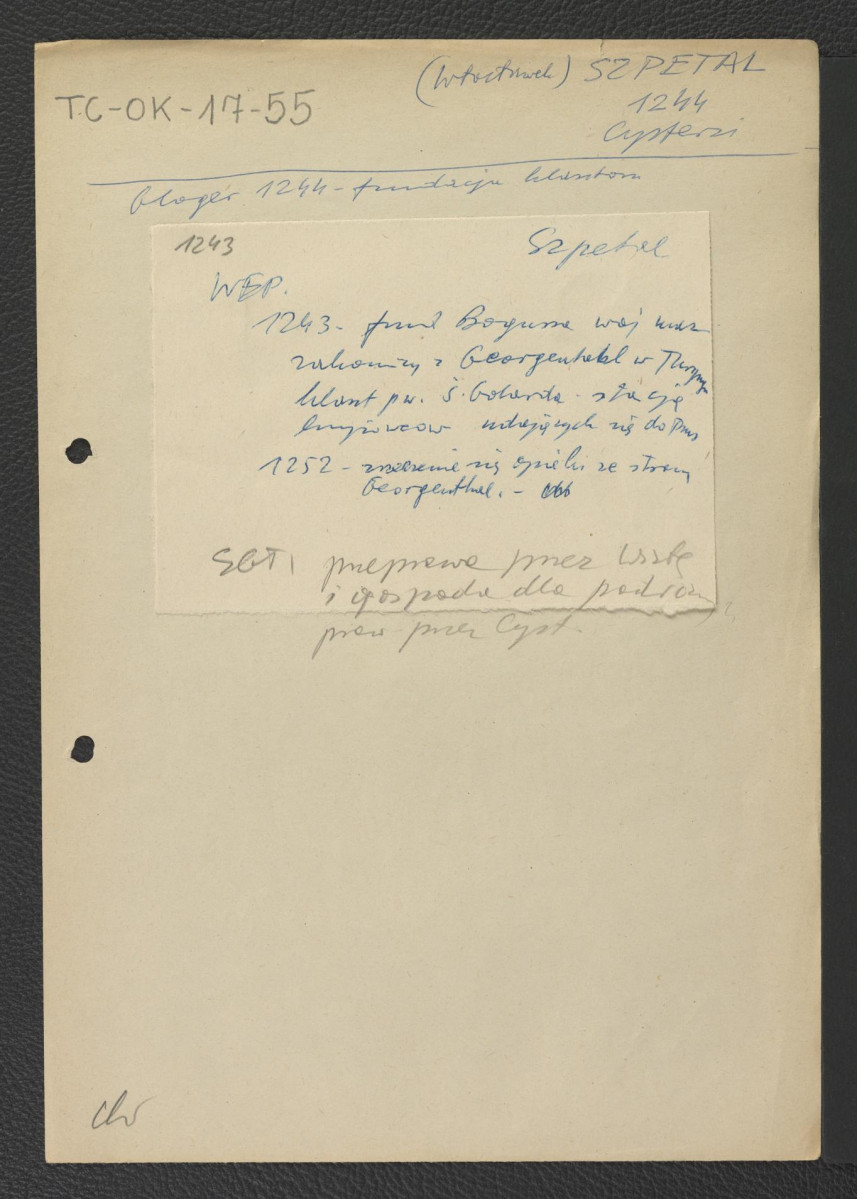 (Włocławek) SZPETAL
TC-OK-17-55
1244
Cystersi
Gloger 1244 - fundacja klasztoru
1243
Szpetal
WEP.
1243 - fund Bogusza woj maz
zakonnicy z Georgenthal w Turyngii
klaszt pw. Ś. Gotarda - stacją
krzyżowców udających się do Prus
1252 - zrzeczenie się opieki ze strony
Georgenthal. -
SGT, przeprawa przez Wisłę
i gospoda dla podróżn.
praw przez Cyst.